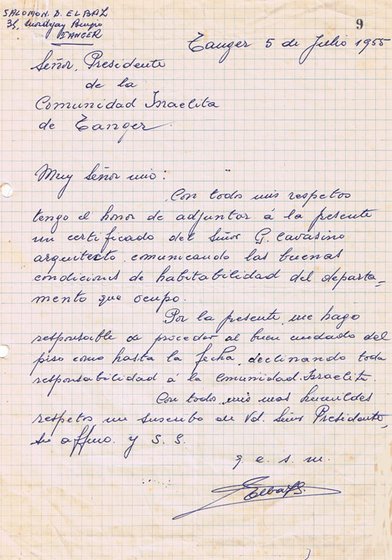 SALOMON. B. ELBAZ
TANGER
9
Tanger 5 de Julio 1955
Señor, Presidente
de la
Comunidad Israelita
de Tanger.
Muy Señor mio:
Con todos mis respetos
tengo el honor de adjuntar á la presente
un certificado del Señor G. Cavasino
arquitecto comunicando las buenas
condiciones de habitabilidad del departa-
mento que ocupo.
Por la presente me hago
responsable de proceder al buen cuidado del
piso como hasta la fecha, declinando toda
responsabilidad á la Comunidad Israelita.
Con todos mis mas humildes
respetos me suscribo de Vd. Señor Presidente,
su affmo. y S. S.
q. e. s. m.
Elbaz S.